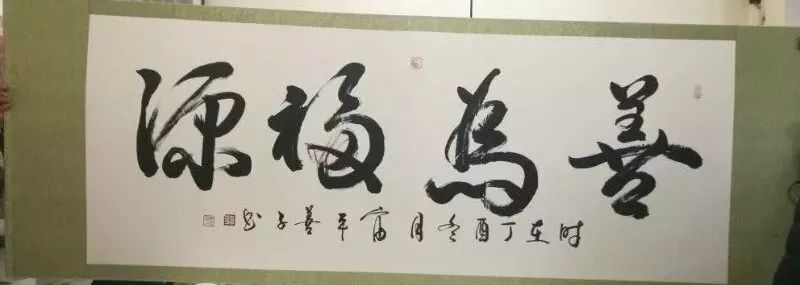 善為福源
时在丁酉冬月富平善子书